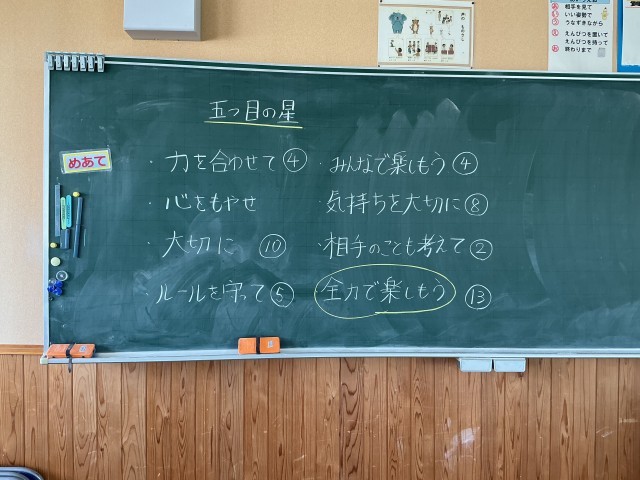 五つ目の星
めあて
・力を合わせて④
・心をもやせ
・大切に⑩
・ルールを守って⑤
・みんなで楽しもう④
・気持ちを大切に⑧
・相手のことも考えて②
全力で楽しもう⑬
相手を見て
いい姿勢で
うなずきながら
えんぴつを置いて
えんぴつを持って
終わりまで